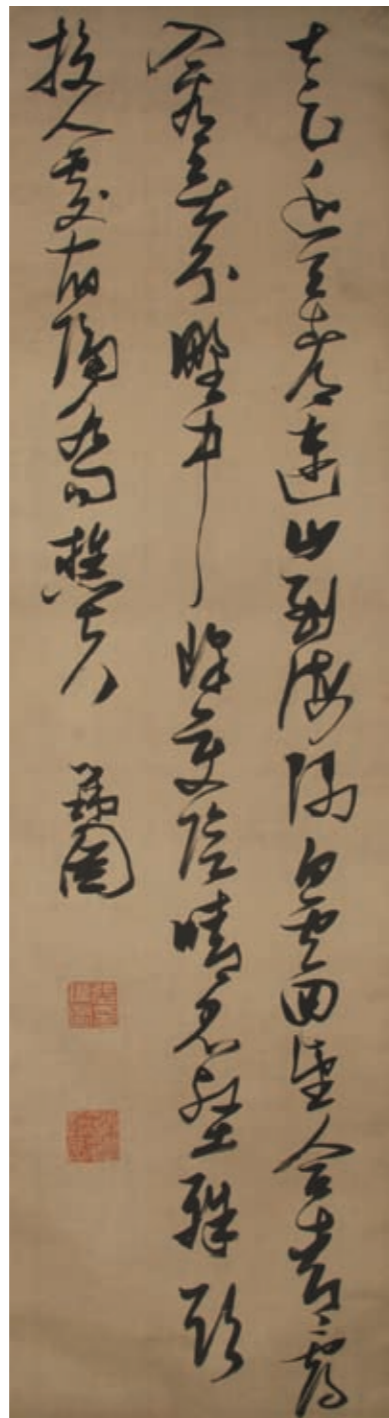 太乙近天都連山到海隅白雲回望合青靄
入看無分野中峰變陰晴衆壑殊欲
投人處宿隔水問樵夫 瑞圖